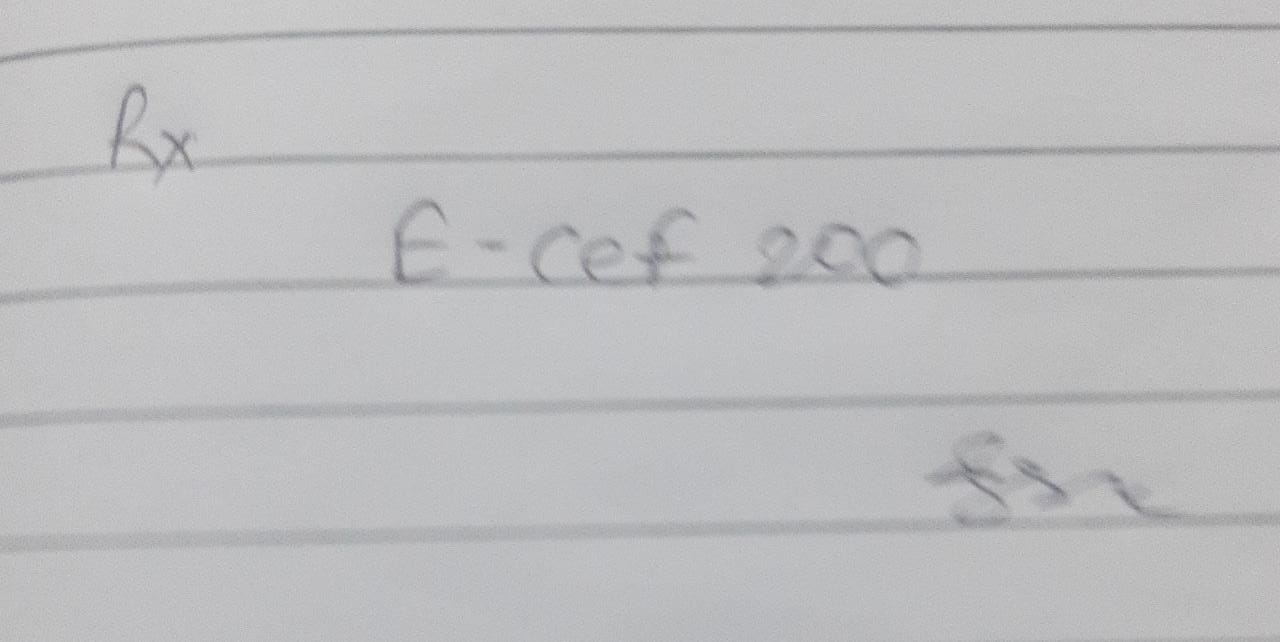 Rx
E-cef 200